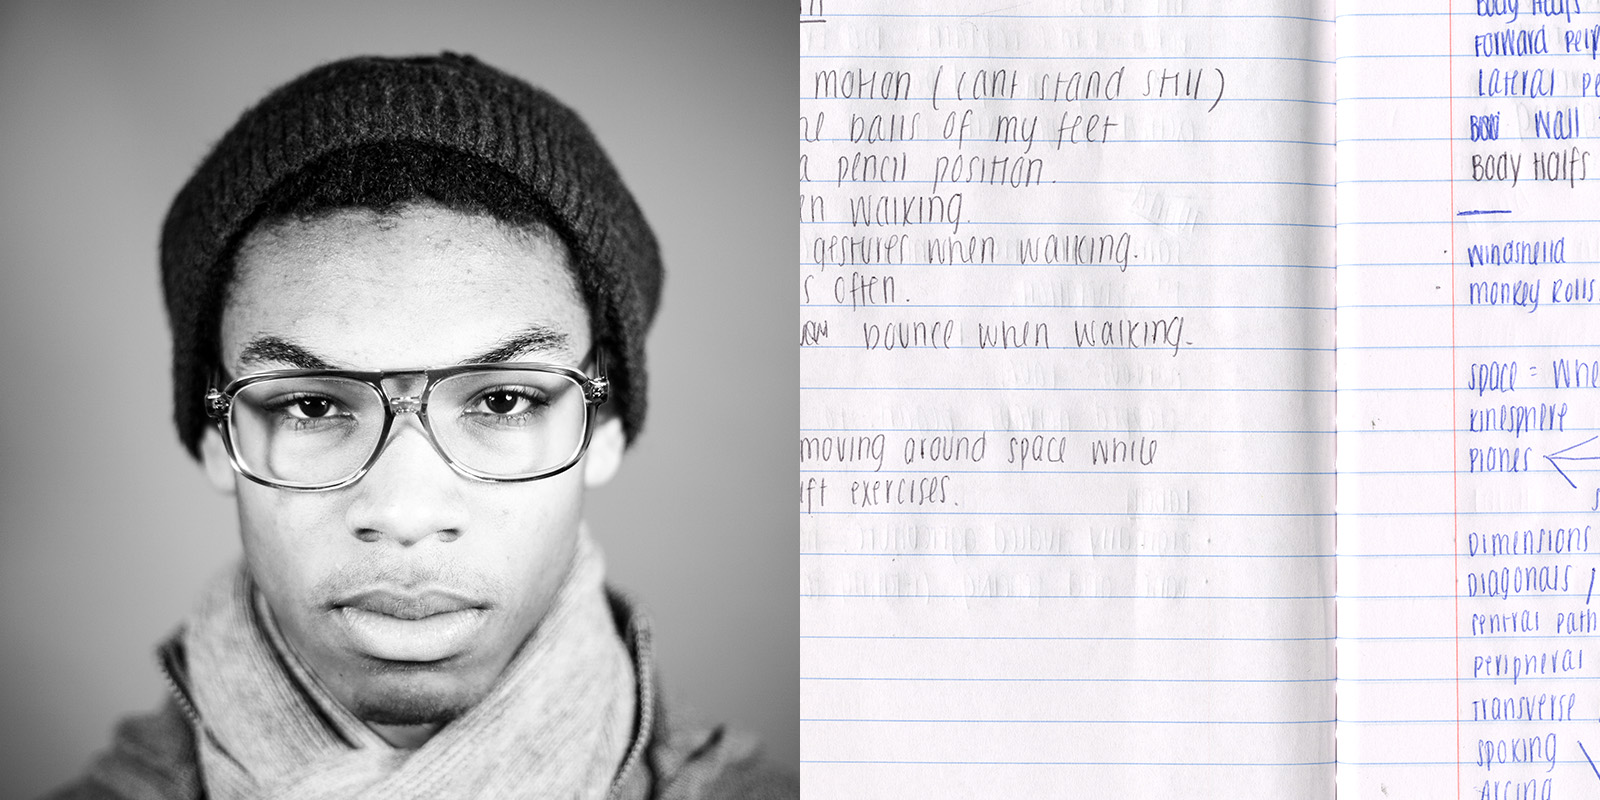 motion (cant stand still)
balls of my feet
a pencil position.
walking.
gestures when walking.
often.
bounce when walking.
moving around space while
exercises.
Body Halfs
Forward
Lateral
Wall
Body Halfs
Windshield
monkey Rolls
space =
kinesphere
Planes
Dimensions
Diagonals /
central path
peripheral
Transverse
spoking
Arcing